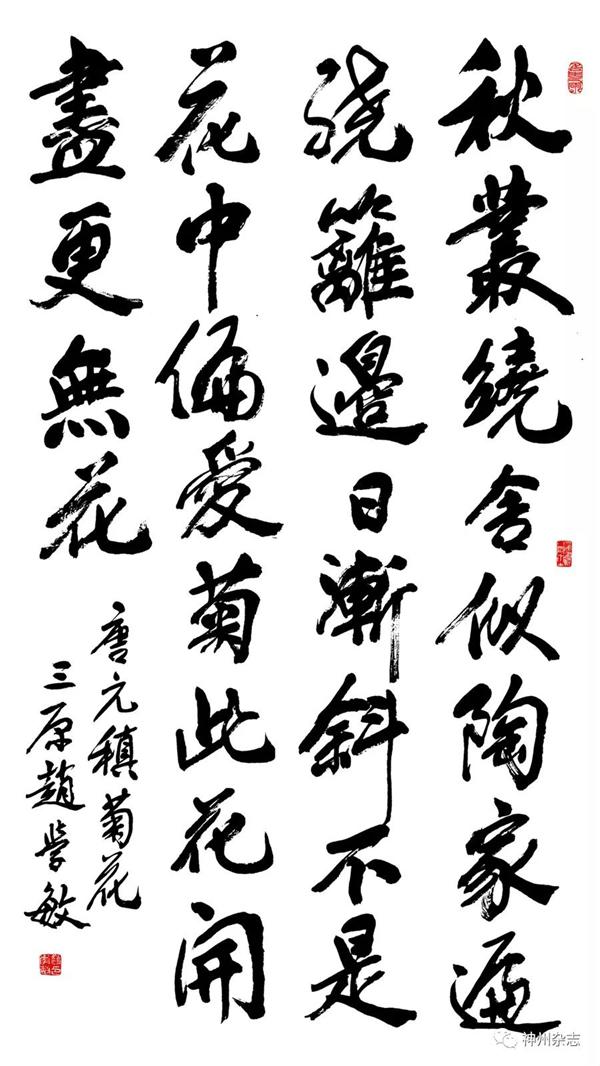 秋叢繞舍似陶家遍
繞籬邊日漸斜不是
花中偏愛菊此花開
盡更無花
唐元稹菊花
三原趙學敏
神州杂志